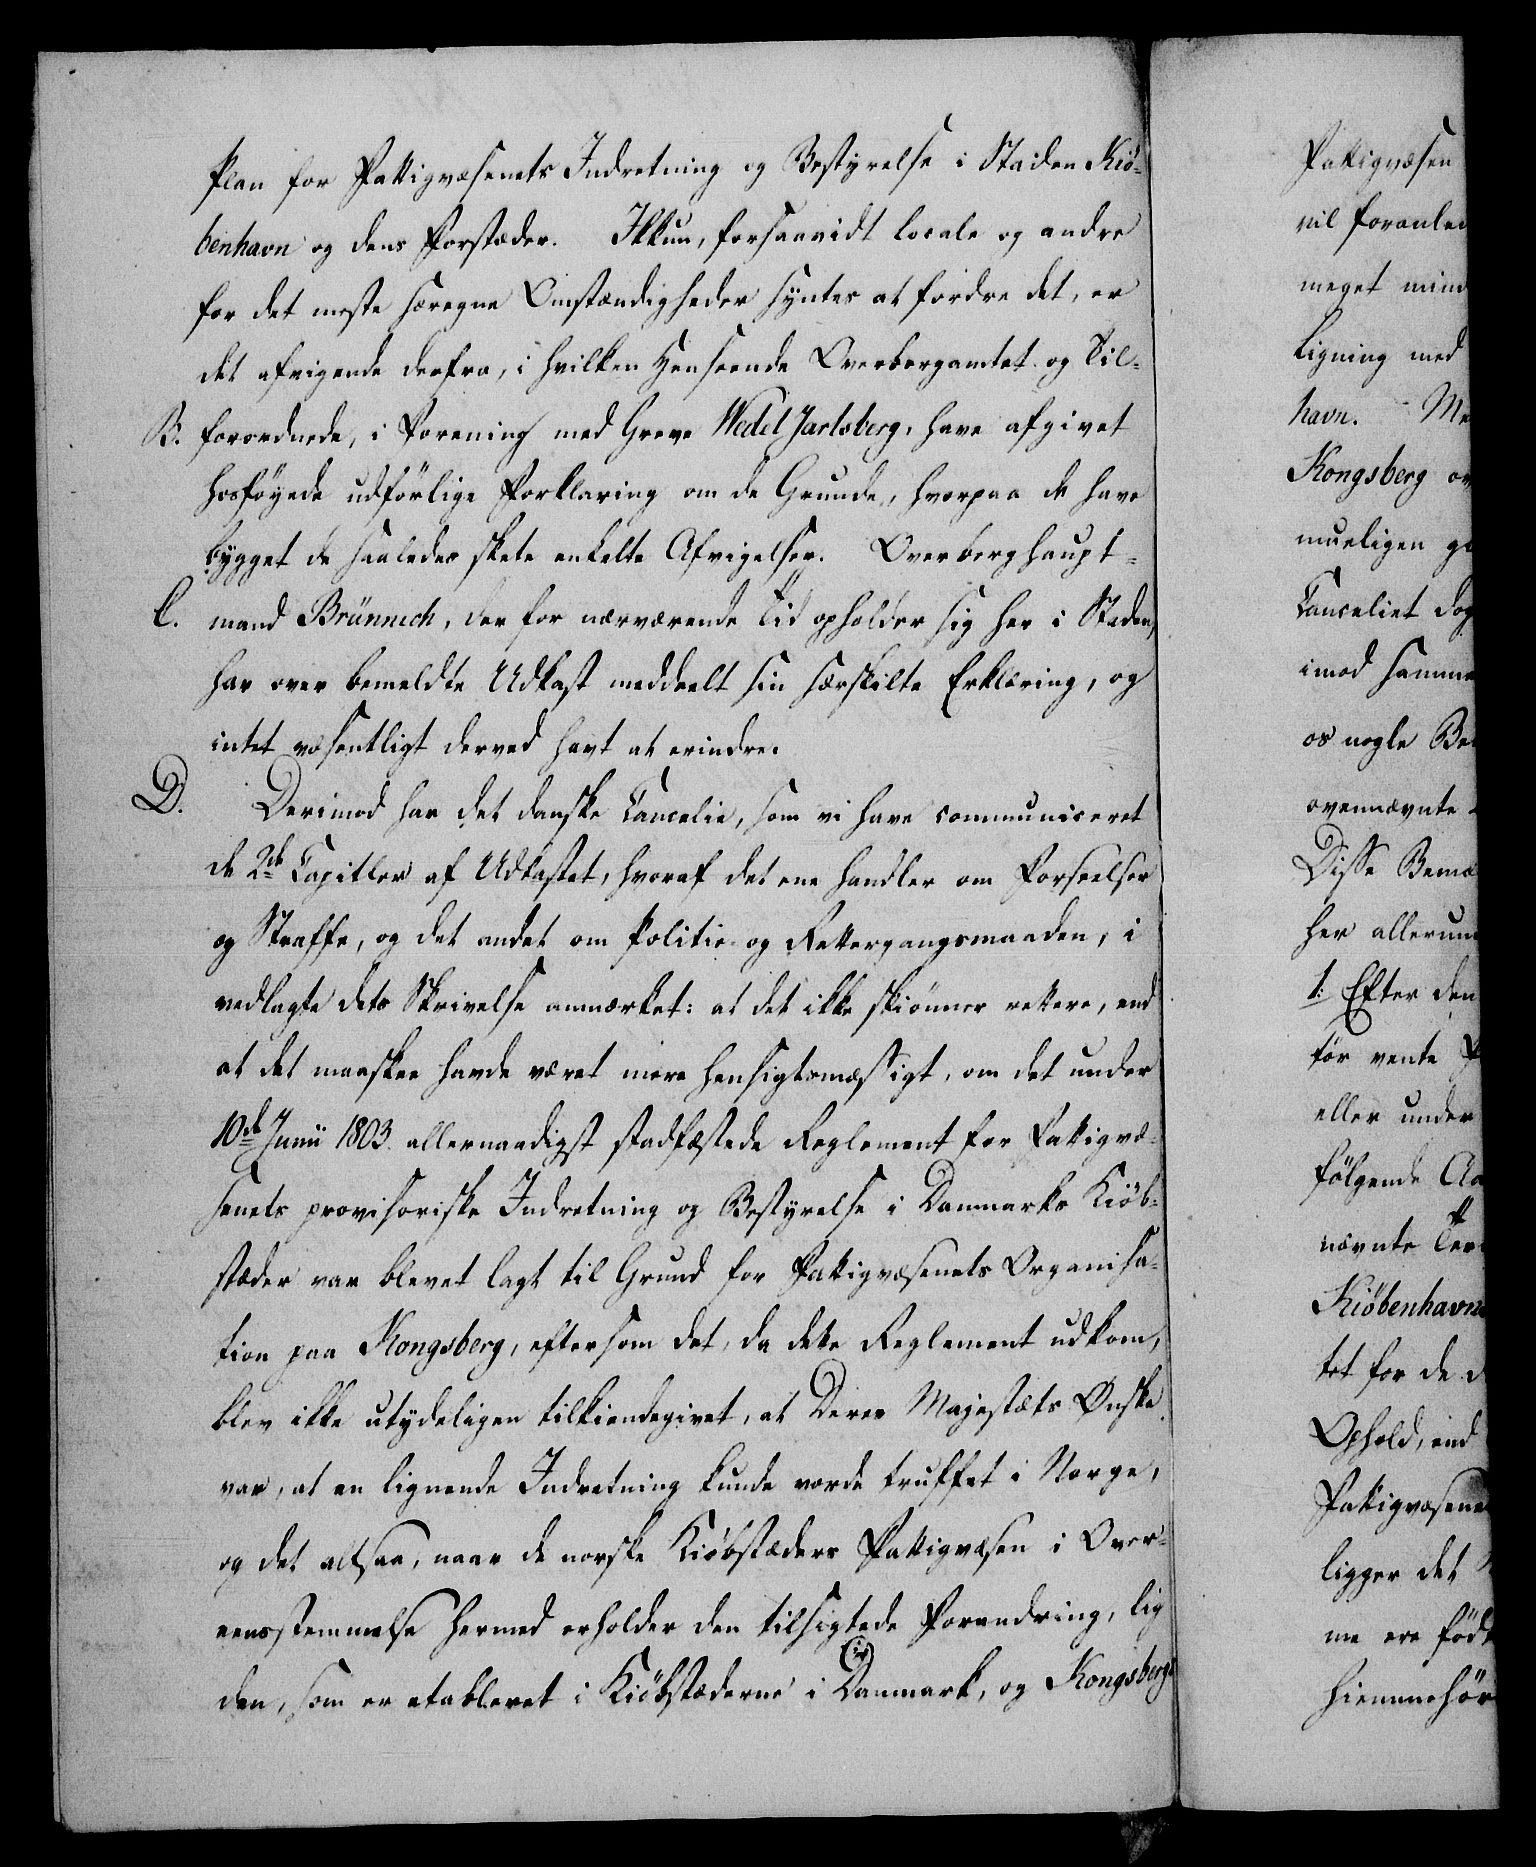 Plan for Fattigvæsenets Indretning og Bestyrelse i Staden Kiö-
benhavn og dens Forstæder. Ikkun, forsaavidt locale og andre
for det meste særegne Omstændigheder syntes at fordre det, er
det afvigende derfra, i hvilken Henseende Overbergamtet og Til-
B. forordnede, i Forening med Greve Wedel Jarlsberg, have afgivet
hosföyede udförlige Forklaring om de Grunde, hvorpaa de have
bygget de saaledes skete enkelte Afvigelser. Overberghaupt-
C. mand Brünnich, der for nærværende Tid opholder sig her i Staden,
har over bemeldte Udkast meddeelt sin særskilte Erklæring, og
intet væsentligt derved havt at erindre.
D. Derimod har det danske Cancelie, som vi have communiceret
de 2de Capitler af Udkastet, hvoraf det ene handler om Forseelser
og Straffe, og det andet om Politie- og Rettergangsmaaden, i
vedlagte dets Skrivelse anmærket: at det ikke skiönner rettere, end
at det maaskee havde været mere hensigtsmæssigt, om det under
10de Junii 1803 allernaadigst stadfæstede Reglement for Fattigvæ-
senets provisoriske Indretning og Bestyrelse i Danmarks Kiöb-
stæder var blevet lagt til Grund for Fattigvæsenets Organisa-
tion paa Kongsberg, eftersom det, da dette Reglement udkom,
blev ikke utydeligen tilkiendegivet, at Deres Majestæts Ønske
var, at en lignende Indretning kunde vorde truffet i Norge,
og det altsaa, naar de norske Kiöbstæders Fattigvæsen i Over-
eensstemmelse hermed erholder den tilsigtede Forandring, lig
den, som er etableret i Kiöbstæderne i Danmark, og Kongsbergs
Fattigvæsen
vil foranled
meget mind
ligning med
havn. Me
Kongsberg ov
mueligen g
Canceliet dog
imod samme
os nogle Be
ovennævnte
Disse Bemæ
her allerun
1. Efter den
för vente
eller under
fölgende Aa
nævnte Ter
Kiöbenhavn
tet for de
Ophold, end
Fattigvæsene
ligger det
me ere föd
hiemmehör